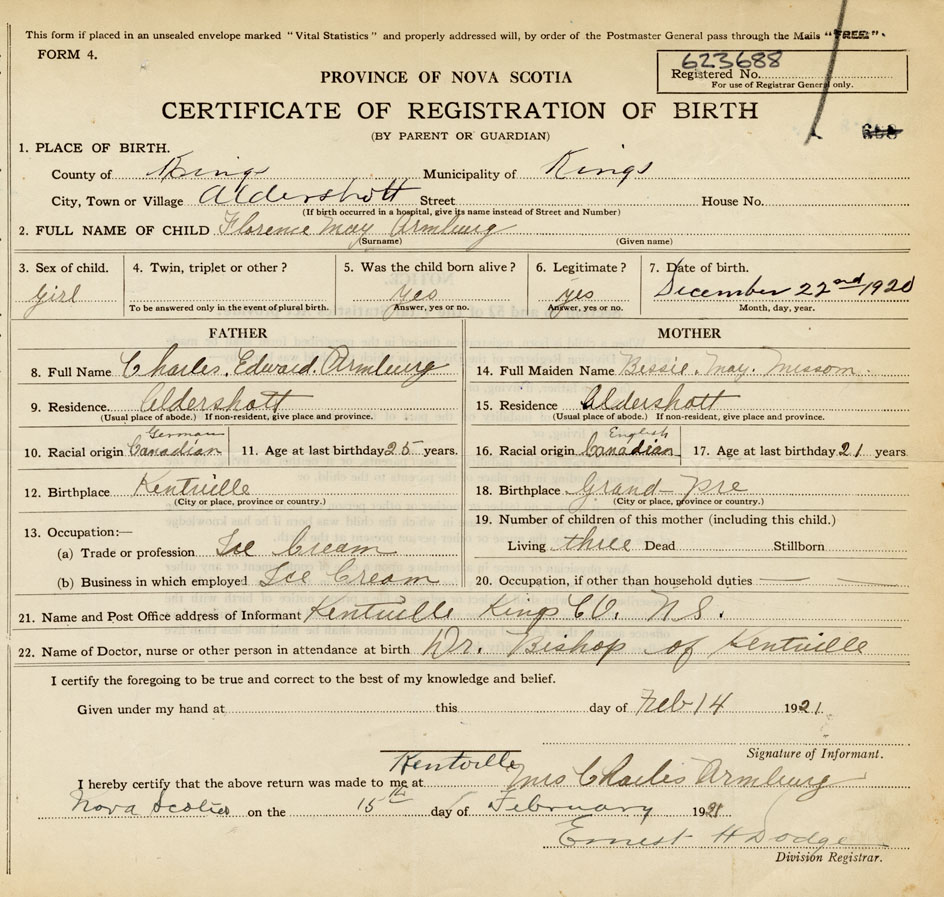 This form if placed in an unsealed envelope marked "Vital Statistics" and properly addressed will, by order of the Postmaster General pass through the Mails "FREE".
FORM 4.
623688
Registered No.
For use of Registrar General only.
PROVINCE OF NOVA SCOTIA
CERTIFICATE OF REGISTRATION OF BIRTH
(BY PARENT OR GUARDIAN)
1. PLACE OF BIRTH.
County of Kings Municipality of Kings
City, Town or Village Aldershott Street House No.
(If birth occurred in a hospital, give its name instead of Street and Number)
2. FULL NAME OF CHILD Florence May Armburg
(Surname) (Given name)
3. Sex of child. 4. Twin, triplet or other? 5. Was the child born alive? 6. Legitimate? 7. Date of birth.
Girl yes yes December 22nd 1920
To be answered only in the event of plural birth. Answer, yes or no. Answer, yes or no. Month, day, year.
FATHER MOTHER
8. Full Name Charles. Edward. Armburg 14. Full Maiden Name Bessie. May.
9. Residence Aldershott 15. Residence Aldershott
(Usual place of abode.) If non-resident, give place and province. (Usual place of abode.) If non-resident, give place and province.
German English
10. Racial origin Canadian 11. Age at last birthday 25 years. 16. Racial origin Canadian 17. Age at last birthday 21 years
12. Birthplace Kentville 18. Birthplace Grand-Pre
(City or place, province or country.) (City or place, province or country.)
13. Occupation:— 19. Number of children of this mother (including this child.)
(a) Trade or profession Ice Cream Living three Dead Stillborn
(b) Business in which employed Ice Cream 20. Occupation, if other than household duties — —
21. Name and Post Office address of Informant Kentville Kings CO. N.S.
22. Name of Doctor, nurse or other person in attendance at birth Dr. Bishop of Kentville
I certify the foregoing to be true and correct to the best of my knowledge and belief.
Given under my hand at this day of Feb 14 1921.
Signature of Informant.
Kentville
I hereby certify that the above return was made to me at Mrs Charles Armburg
Nova Scotia on the 15th day of February 1921
Ernest H Dodge
Division Registrar.